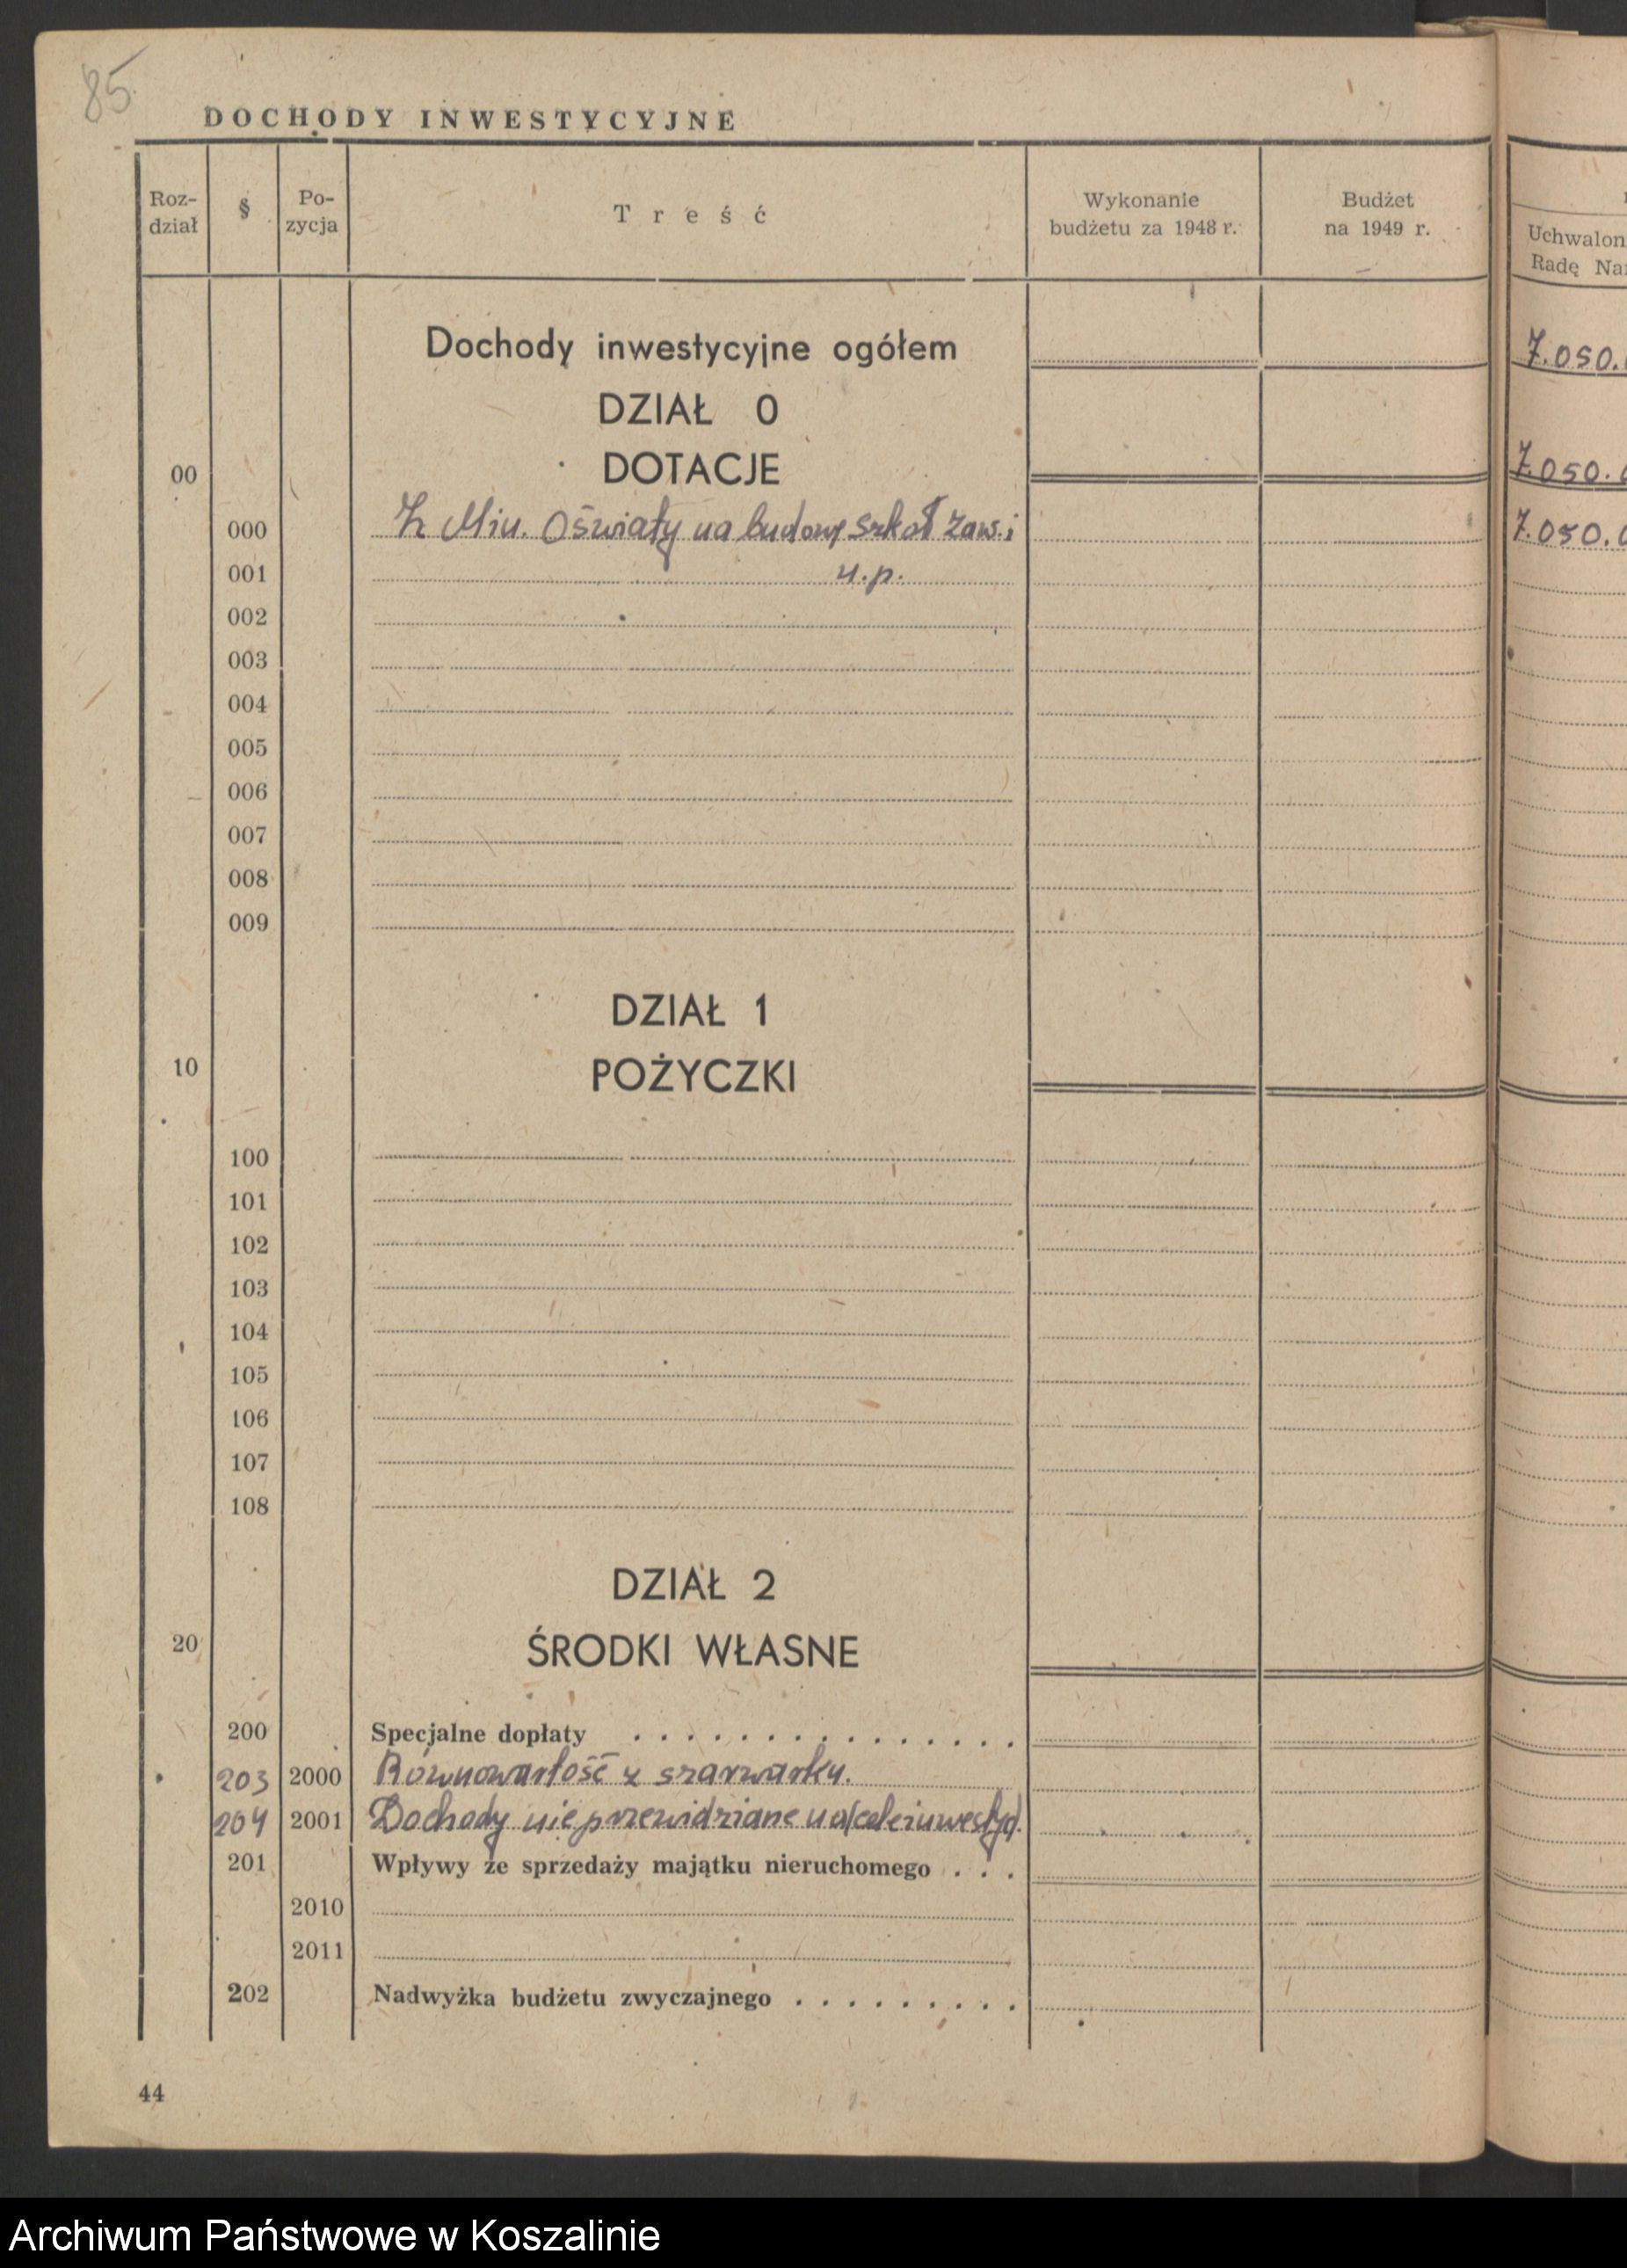 85
DOCHODY INWESTYCYJNE
Roz-
dział
§
Po-
zycja
Treść
Wykonanie
budżetu za 1948 r.
Budżet
na 1949 r.
Uchwalon
Radę Na
Dochody inwestycyjne ogółem
7.050.
DZIAŁ 0
00 DOTACJE 7.050.0
000 Z Min. Oświaty na budowę szkoł zaw. i 7.050.0
001 u.p.
002
003
004
005
006
007
008
009
DZIAŁ 1
10 POŻYCZKI
100
101
102
103
104
105
106
107
108
DZIAŁ 2
20 ŚRODKI WŁASNE
200 Specjalne dopłaty
203 2000 Równowartość z szarwarku.
204 2001 Dochody nieprzewidziane na cele inwestyc.
201 Wpływy ze sprzedaży majątku nieruchomego . . .
2010
2011
202 Nadwyżka budżetu zwyczajnego
44
Archiwum Państwowe w Koszalinie